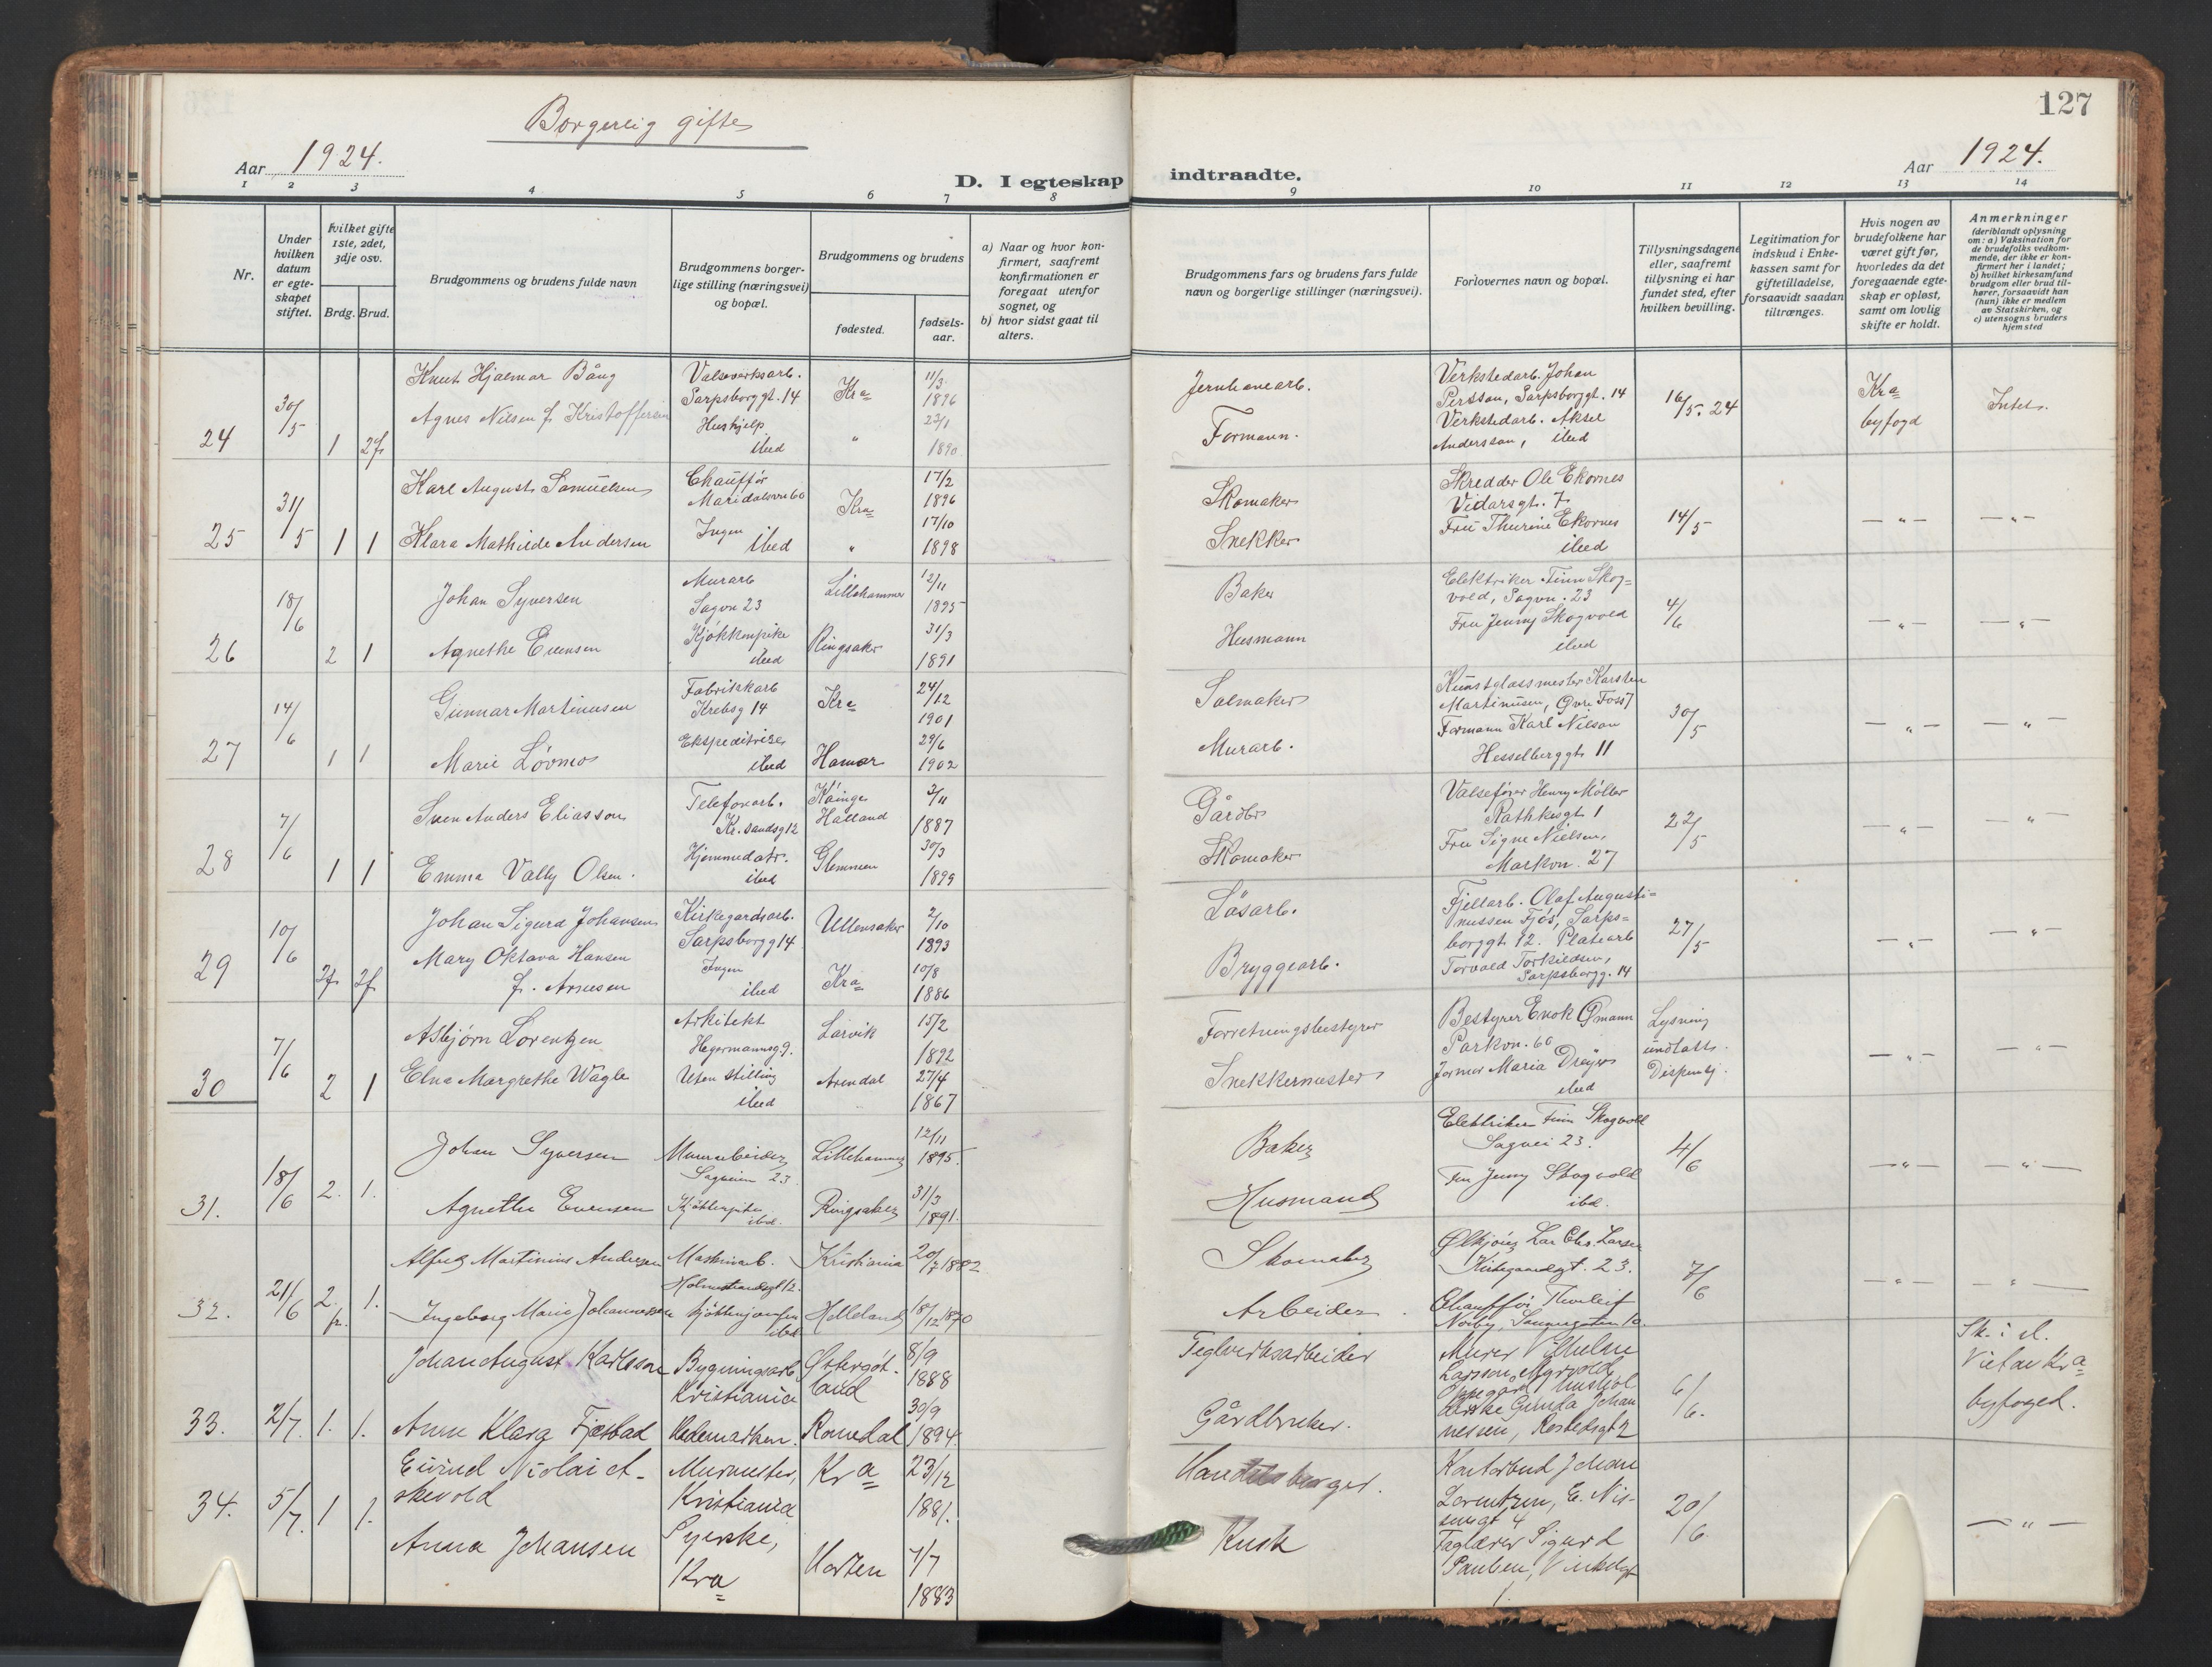 127
Borgerlig gifte
Aar 1924.
D. I egteskap indtraadte.
Aar 1924.
1 2 3 4 5 6 7 8 9 10 11 12 13 14
Nr.
Under hvilken datum er egteskapet stiftet.
hvilket gifte 1ste, 2det, 3dje osv.
Brdg. Brud.
Brudgommens og brudens fulde navn
Brudgommens borgerlige stilling (næringsvei) og bopæl.
Brudgommens og brudens
fødested.
fødselsaar.
a) Naar og hvor konfirmert, saafremt konfirmationen er foregaat utenfor sognet, og
b) hvor sidst gaat til alters.
Brudgommens fars og brudens fars fulde navn og borgerlige stillinger (næringsvei).
Forlovernes navn og bopæl.
Tillysningsdagene eller, saafremt tillysning ei har fundet sted, efter hvilken bevilling.
Legitimation for indskud i Enkekassen samt for giftetilladelse, forsaavidt saadan tiltrænges.
Hvis nogen av brudefolkene har været gift før, hvorledes da det foregaaende egteskap er opløst, samt om lovlig skifte er holdt.
Anmerkninger (deriblandt oplysning om: a) Vaksination for de brudefolks vedkommende, der ikke er konfirmert her i landet; b) hvilket kirkesamfund brudgom eller brud tilhører, forsaavidt han (hun) ikke er medlem av Statskirken, og c) utensogns bruders hjemsted
24 30/5 1 2f
Knut Hjalmar Bång
Agnes Nilsen f. Kristoffersen
Valseverksarb.
Sarpsborggt. 14
Hushjelp
ibid
Kra
"
11/3
1896
23/1
1890
Jernbanearb.
Formann.
Verkstedarb. Johan
Persson, Sarpsborggt. 14
Verkstedarb. Aksel
Andersson, ibid
16/5. 24
Kra
byfogd
Intet.
25 31/5 1 1
Karl August Samuelsen
Klara Mathilde Andersen
Chauffør
Maridalsvn 60
Ingen
ibid
Kra
"
17/2
1896
17/10
1898
Skomaker
Snekker
Skredder Ole Ekornes
Vidarsgt. 7
Fru Thurine Ekornes
ibid
14/5
— " —
— " —
26 18/6 2 1
Johan Syversen
Agnethe Evensen
Murarb
Sagvn 23
Kjøkkenpike
ibid
Lillehammer
Ringsaker
12/11
1895
31/3
1891
Baker
Husmann
Elektriker Finn Skog=
vold, Sagvn. 23
Fru Jenny Skogvold
ibid
4/6
— " —
— " —
27 14/6 1 1
Gunnar Martinusen
Marie Løvmo
Fabrikkarb
Krebsg 14
Ekspeditrise
ibid
Kra
Hamar
24/12
1901
29/6
1902
Salmaker
Murarb.
Kunstglassmester Karsten
Martinusen, Øvre Foss 7
Formann Karl Nilson
Hesselberggt 11
30/5
— " —
— " —
28 7/6 1 1
Sven Anders Eliasson
Emma Vally Olsen.
Telefonarb.
Kr. sandsg 12
Hjemmedatr.
ibid
Halland
Glemmen
2/11
1887
30/3
1899
Gårdbr
Skomaker
Valsefører Henry Møller
Rathkesgt 1
Fru Signe Nielsen,
Markvn. 27
22/5
— " —
— " —
29 10/6 2f 2f
Johan Sigurd Johansen
Mary Oktava Hansen
f. Arnesen
Kirkegårdsarb.
Sarpsborgg 14
Ingen
ibid
Ullensaker
Kra
2/10
1893
10/8
1886
Løsarb.
Bryggearb.
Fjellarb. Olaf Augusti=
nussen Fjøs, Sarps=
borggt 12. Platearb
Torvald Torkildsen,
Sarpsborgg. 14
27/5
— " —
— " —
30 7/6 2 1
Asbjørn Lorentzen
Elna Margrethe Wågle
Arkitekt
Hegermannsg. 9.
Uten stilling
ibid
Larvik
Arendal
15/2
1892
27/4
1867
Forretningsbestyrer
Snekkermester
Bestyrer Enok Ømann
Parkvn. 60
Maria Dreyer
ibid
Lysning
undlatt.
Dispensj.
— " —
— " —
31. 18/6 2. 1.
Johan Syversen
Agnethe Evensen
Murarbeider
Sagveien 23
Kjøkkenpike
ibid.
Lillehammer
Ringsaker
12/11
1895.
31/3
1891.
Baker
Husmand
Elektriker Finn Skogvold
Sagvei 23.
Fru Jenny Skogvold
ibid.
4/6
— " —
— " —
32. 21/6 2. fr. 1.
Alfred Martinius Andersen
Ingeborg Marie Johannessen
Maskinarb.
Holmestrandsgt 12.
ibid
Kristiania
Helleland
20/7 1882
18/12 1870
Skomaker
Arbeider
Ølkjører Lar Chr. Larsen
Kirkegaardsgt. 23.
Chauffør Thorleif
Norby, 10.
7/6
— " —
— " —
33. 2/7. 1. 1.
Johan August Karlsson
Anne Klara Fjæstad
Bygningsarb
Kristiania
Hedemarken.
Østergøt-
land
Romedal
8/9
1888
30/9
1894.
Teglverksarbeider
Gårdbruker.
Murer Vilhelm
Larsson, Myrvold,
Oppegård, hushol
derske Gunda Johan
nessen, 2
6/6.
Sk. i d.
Viet av Kra
byfoged.
34. 5/7. 1 1.
Eivind Nicolai A-
skevold
Anna Johansen
Murmester,
Kristiania
Syerske,
Kra
Kra
Horten
23/12
1881.
7/7
1883
Handelsborger.
Kusk
Kontorbud Johan
Lorentzen, E. Nis-
sensgt 4
Faglærer Sigurd
Paulsen,
1.
20/6
— " —